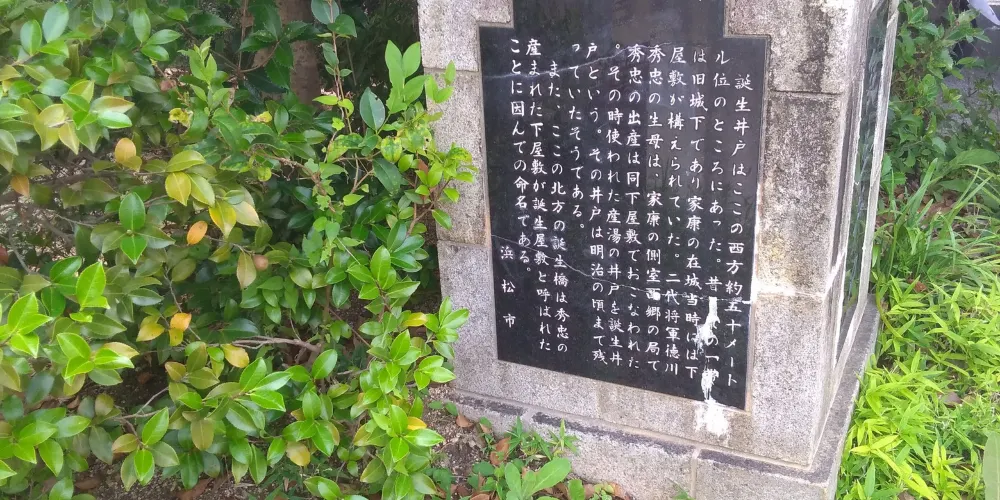 誕生井戸はここの西方約五十メート
ル位のところにあった。昔 の一
は旧城下であり家康の在城当時には下
屋敷が構えられていた。二代将軍徳川
秀忠の生母は、家康の側室西郷の局で
秀忠の出産は同下屋敷でおこなわれた
。その時使われた産湯の井戸を誕生井
戸という。その井戸は明治の頃まで残
っていたそうである。
また、ここの北方の誕生橋は秀忠の
産まれた下屋敷が誕生屋敷と呼ばれた
ことに因んでの命名である。
浜松市